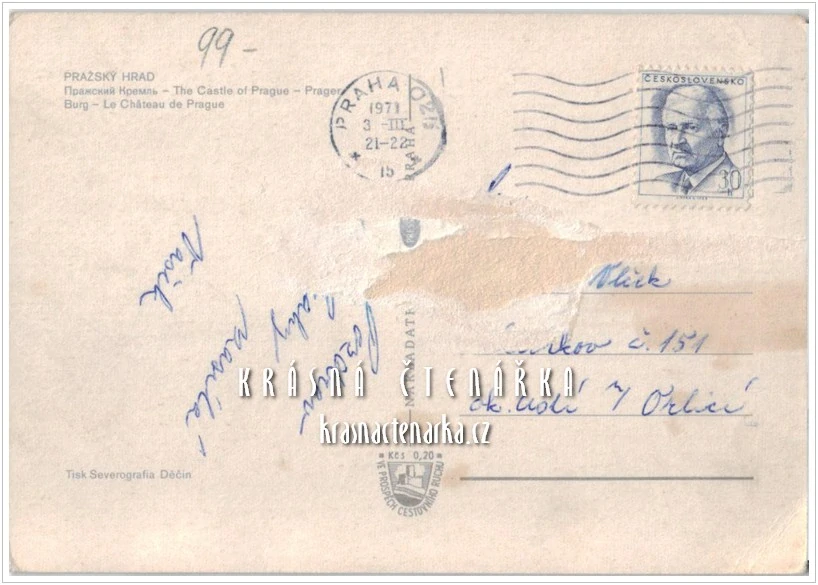 99-
PRAŽSKÝ HRAD
Пражский Кремль – The Castle of Prague – Prager
Burg – Le Château de Prague
PRAHA 025
1971
3 -III
21-22
15
PRAHA
ČESKOSLOVENSKO
30
h
Vlček
č. 151
ok. Ústí n/ Orlicí
Pozdrav
Prahy
NAKLADATE
KRÁSNÁ ČTENÁŘKA
krasnactenarka.cz
Kčs 0,20
VE PROSPĚCH CESTOVNÍHO RUCHU
Tisk Severografia Děčín